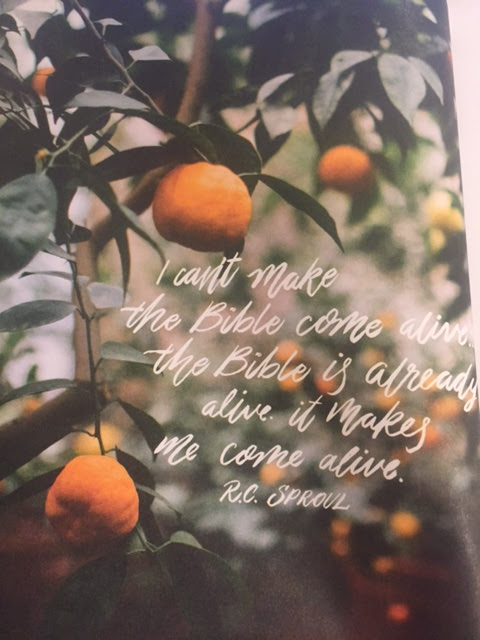 I can't make
the Bible come alive.
the Bible is already
alive. it makes
me come alive.
R.C. SPROUL